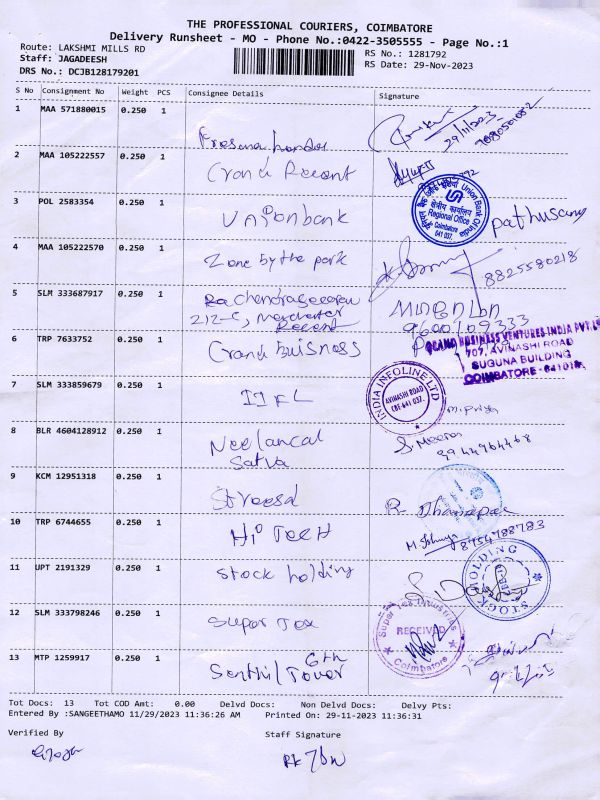 THE PROFESSIONAL COURIERS, COIMBATORE
Delivery Runsheet - MO - Phone No.:0422-3505555 - Page No.:1
Route: LAKSHMI MILLS RD
RS No.: 1281792
Staff: JAGADEESH
RS Date: 29-Nov-2023
DRS No.: DCJB128179201
S No Consignment No Weight PCS Consignee Details Signature
1 MAA 571880015 0.250 1
29/11/2023
2 MAA 105222557 0.250 1 Grand Recent
3 POL 2583354 0.250 1 Unionbank
Union Bank Of India
Regional Office
Coimbatore
641 037.
4 MAA 105222570 0.250 1 Zone by the park
8825580218
5 SLM 333687917 0.250 1
212-C,
9600109333
6 TRP 7633752 0.250 1 Grand Buisness
GRAND BUSINESS VENTURES INDIA PVT.L
707, AVINASHI ROAD
SUGUNA BUILDING
COIMBATORE - 641018
7 SLM 333859679 0.250 1 IIFL
INDIA INFOLINE LTD
AVINASHI ROAD
CBE-641 037.
8 BLR 4604128912 0.250 1 Neelancal
Satva
S. Meena
9944964468
9 KCM 12951318 0.250 1
R.
10 TRP 6744655 0.250 1 Hi Tech
8754788783
11 UPT 2191329 0.250 1 Stock holding
STOCK HOLDING
12 SLM 333798246 0.250 1 Super Tex
Super Tex Industries
RECEIVED
Coimbatore
13 MTP 1259917 0.250 1 Senthil Tower 6th
Tot Docs: 13 Tot COD Amt: 0.00 Delvd Docs: Non Delvd Docs: Delvy Pts:
Entered By :SANGEETHAMO 11/29/2023 11:36:26 AM Printed On: 29-11-2023 11:36:31
Verified By
Staff Signature